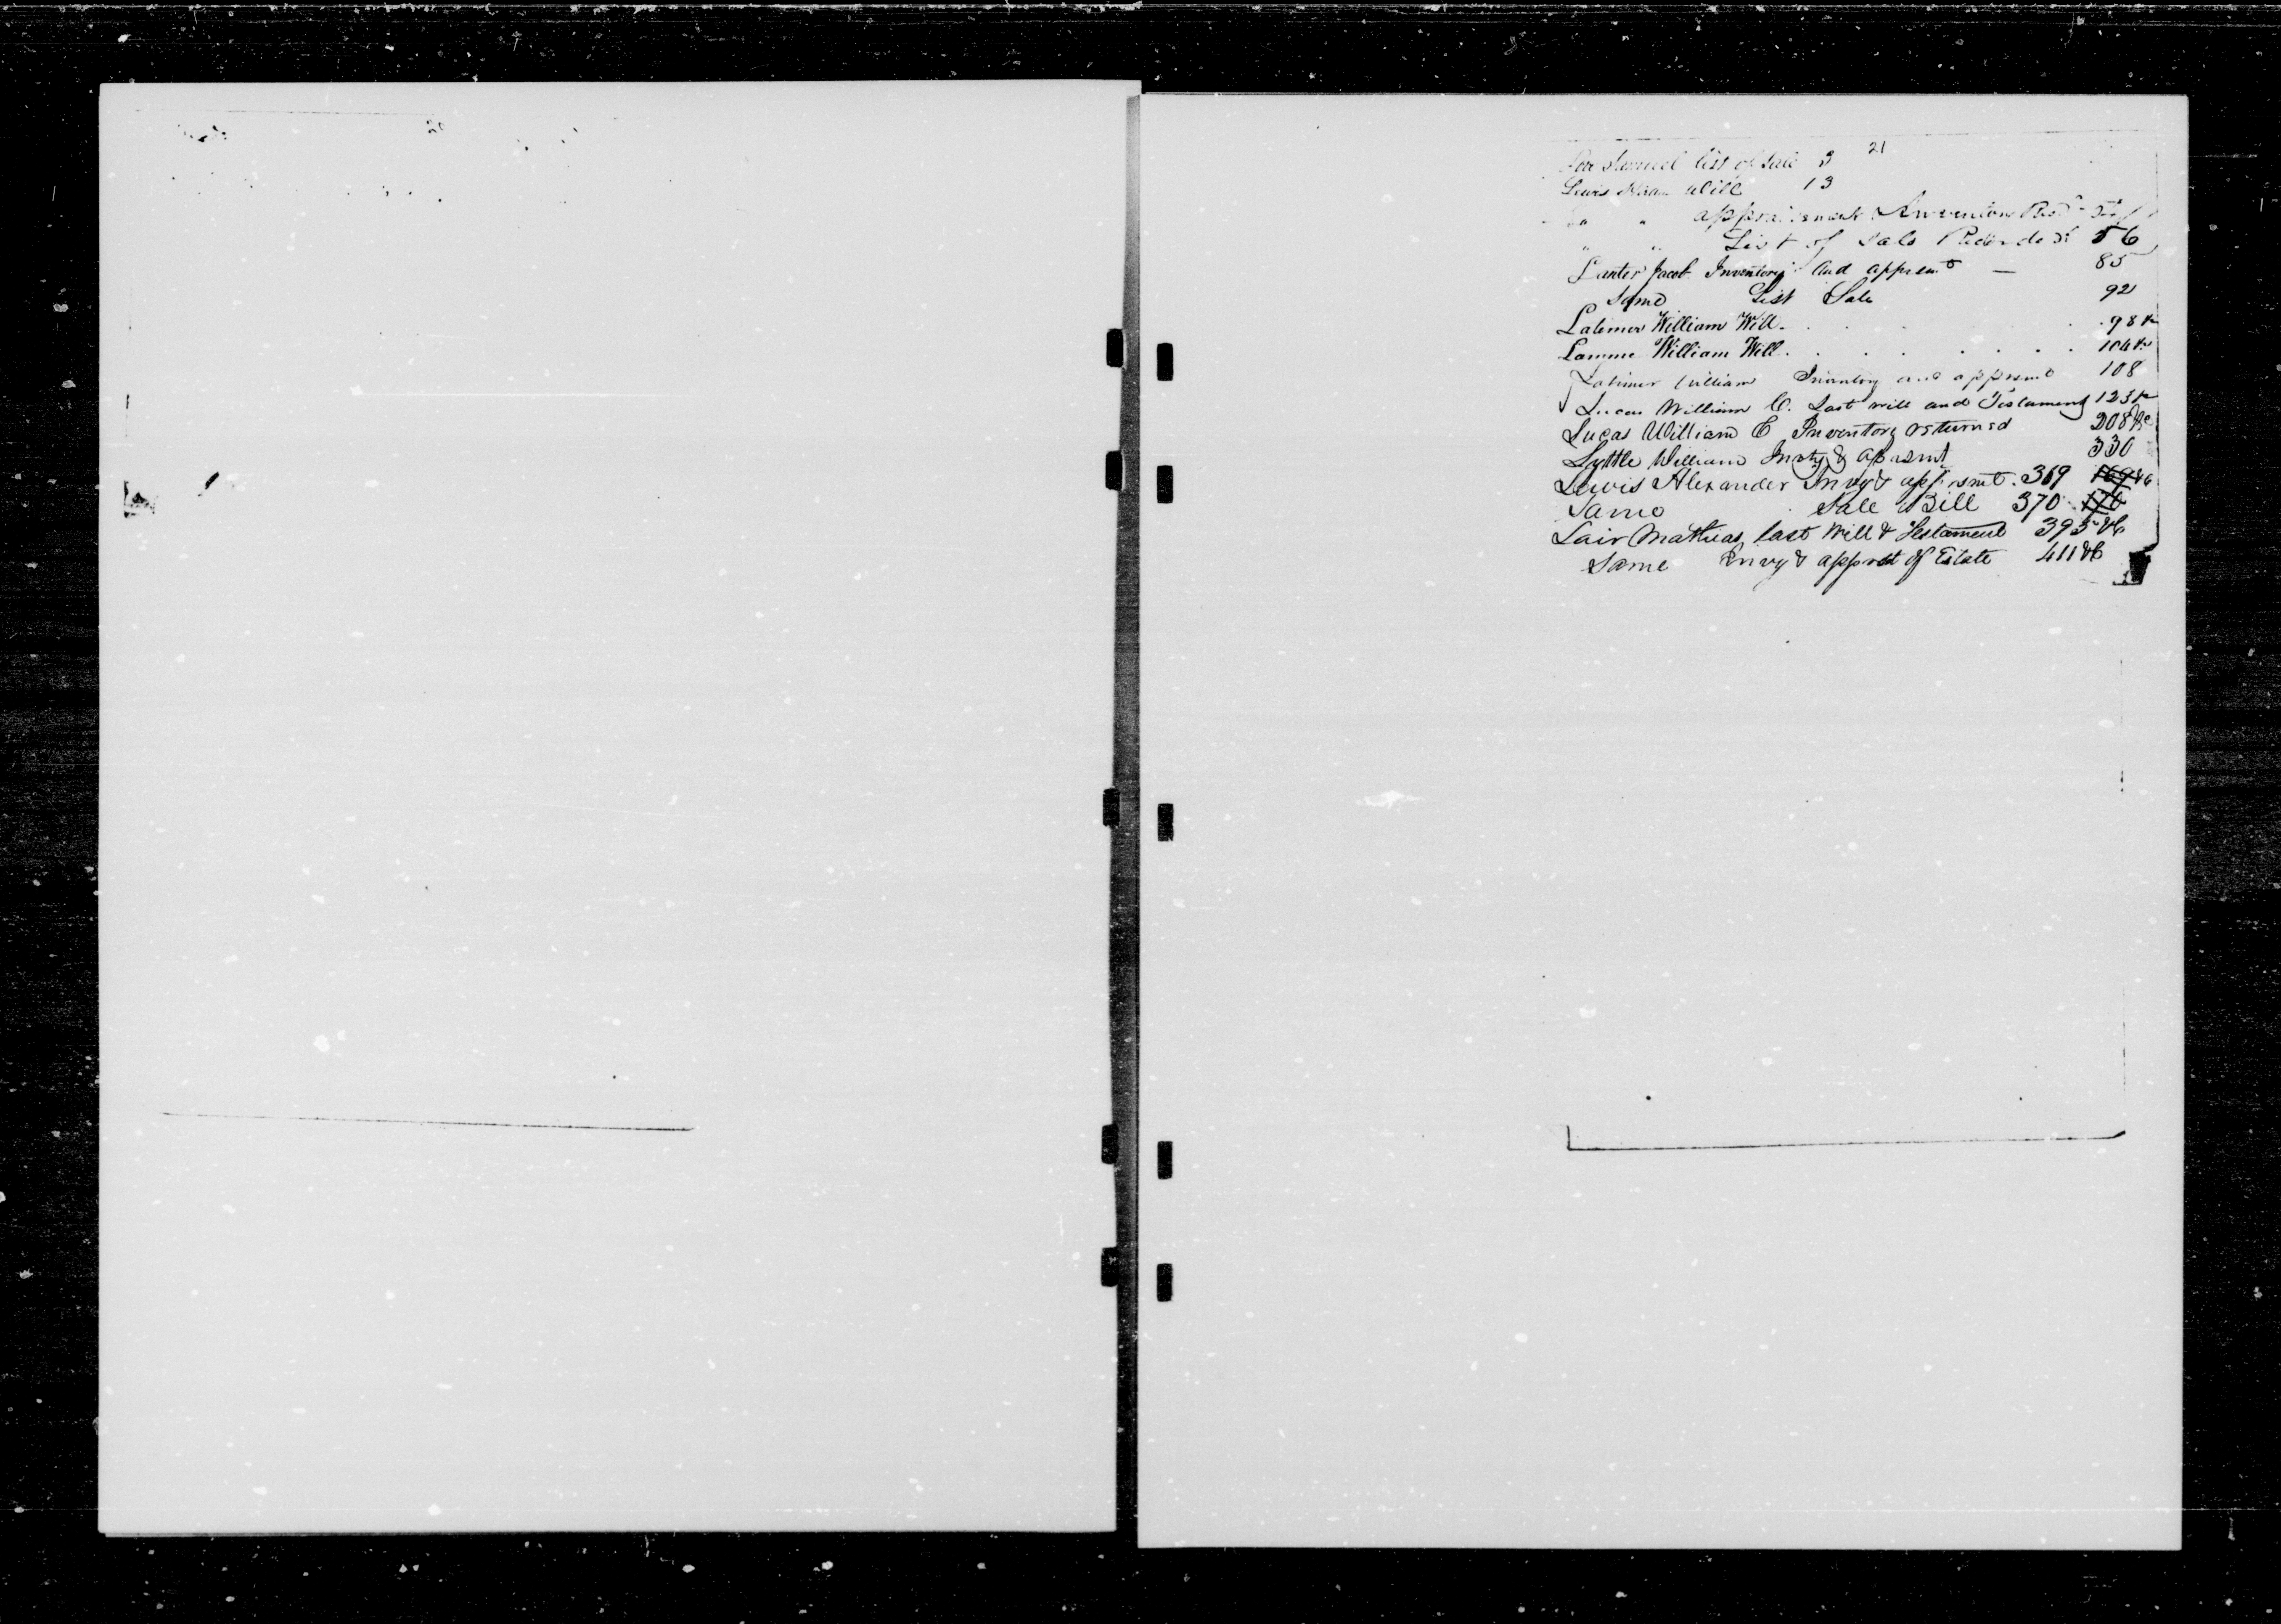 21
Samuel list of Sale 3
Lewis Will 13
" " appraisement & Inventory
" " List of Sale Recorded 56
Lanter Jacob Inventory and appremt — 85
Same List Sale 92
Latimer William Will. 98
Lamme William Will. 104
Latimer William Inventory and apprsmt 108
Lucas William C. Last will and Testament 123
Lucas William E Inventory returned 208
Lyttle William Invty & aprsmt 330
Lewis Alexander Invy & apprsmt. 369
Same Sale Bill 370
Lair Mathias last Will & Testament 395
Same Invy & apprst of Estate 411